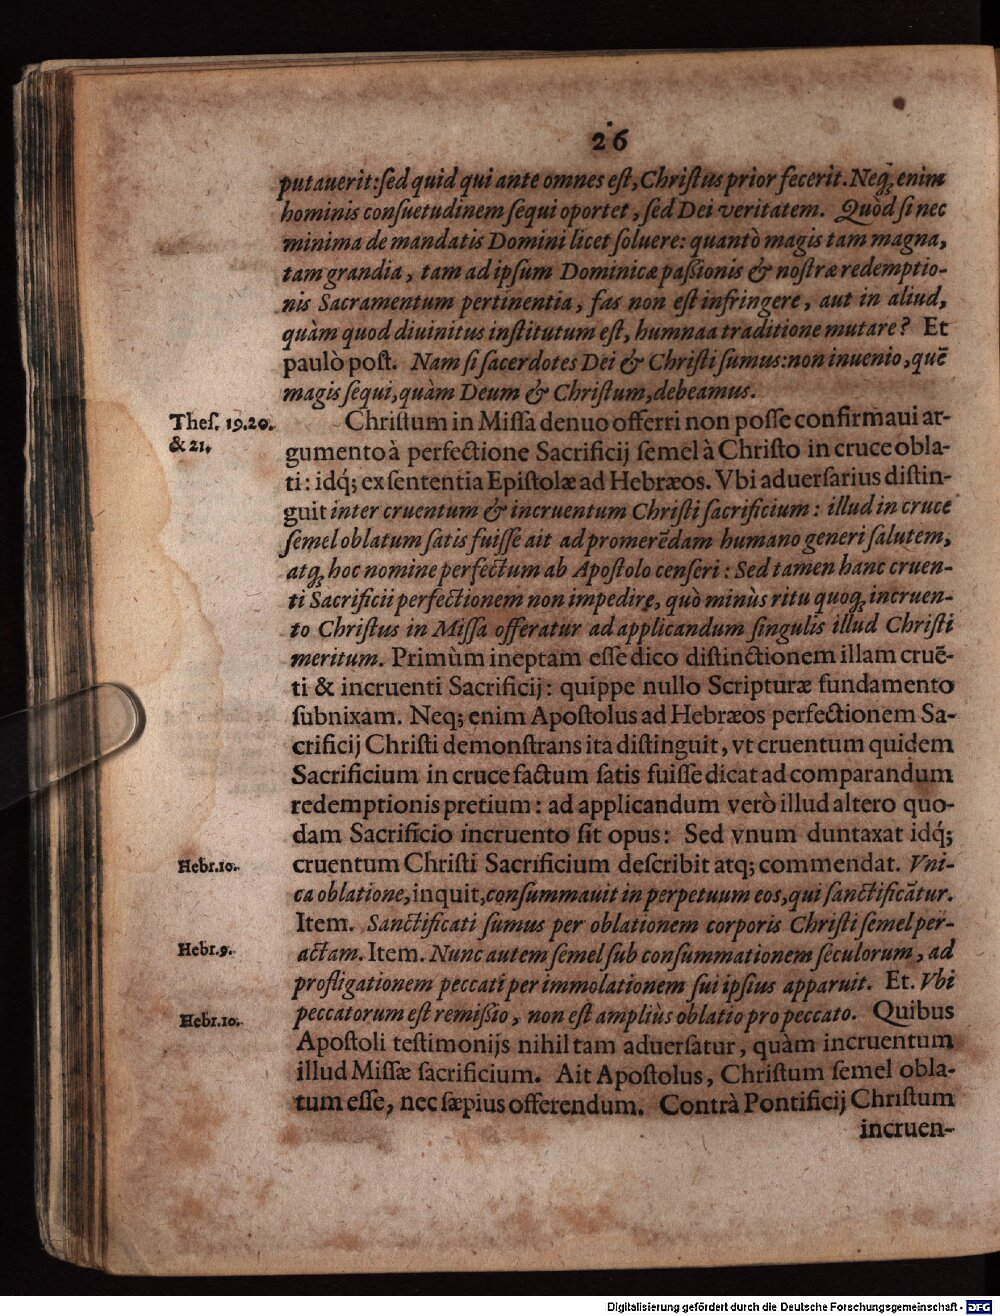 26
putauerit: sed quid qui ante omnes est, Christus prior fecerit. Neq; enim
hominis consuetudinem sequi oportet, sed Dei veritatem. Quòd si nec
minima de mandatis Domini licet soluere: quantò magis tam magna,
tam grandia, tam ad ipsum Dominicæ passionis & nostræ redemptio-
nis Sacramentum pertinentia, fas non est infringere, aut in aliud,
quàm quod diuinitus institutum est, humnaa traditione mutare? Et
paulò post. Nam si sacerdotes Dei & Christi sumus: non inuenio, quē
magis sequi, quàm Deum & Christum, debeamus.
Thes. 19.20.
& 21.
Christum in Missa denuo offerri non posse confirmaui ar-
gumento à perfectione Sacrificij semel à Christo in cruce obla-
ti: idq́; ex sententia Epistolæ ad Hebræos. Vbi aduersarius distin-
guit inter cruentum & incruentum Christi sacrificium: illud in cruce
semel oblatum satis fuisse ait ad promerēdam humano generi salutem,
atq; hoc nomine perfectum ab Apostolo censeri: Sed tamen hanc cruen-
ti Sacrificii perfectionem non impedire, quò minùs ritu quoq; incruen-
to Christus in Missa offeratur ad applicandum singulis illud Christi
meritum. Primùm ineptam esse dico distinctionem illam cruē-
ti & incruenti Sacrificij: quippe nullo Scripturæ fundamento
subnixam. Neq; enim Apostolus ad Hebræos perfectionem Sa-
crificij Christi demonstrans ita distinguit, vt cruentum quidem
Sacrificium in cruce factum satis fuisse dicat ad comparandum
redemptionis pretium: ad applicandum verò illud altero quo-
dam Sacrificio incruento sit opus: Sed vnum duntaxat idq́;
Hebr.10.
cruentum Christi Sacrificium describit atq; commendat. Vni-
ca oblatione, inquit, consummauit in perpetuum eos, qui sanctificātur.
Item. Sanctificati sumus per oblationem corporis Christi semel per-
Hebr.9.
actam. Item. Nunc autem semel sub consummationem seculorum, ad
profligationem peccati per immolationem sui ipsius apparuit. Et. Vbi
Hebr.10.
peccatorum est remissio, non est ampliùs oblatio pro peccato. Quibus
Apostoli testimonijs nihil tam aduersatur, quàm incruentum
illud Missæ sacrificium. Ait Apostolus, Christum semel obla-
tum esse, nec sæpius offerendum. Contrà Pontificij Christum
incruen-
Digitalisierung gefördert durch die Deutsche Forschungsgemeinschaft - DFG